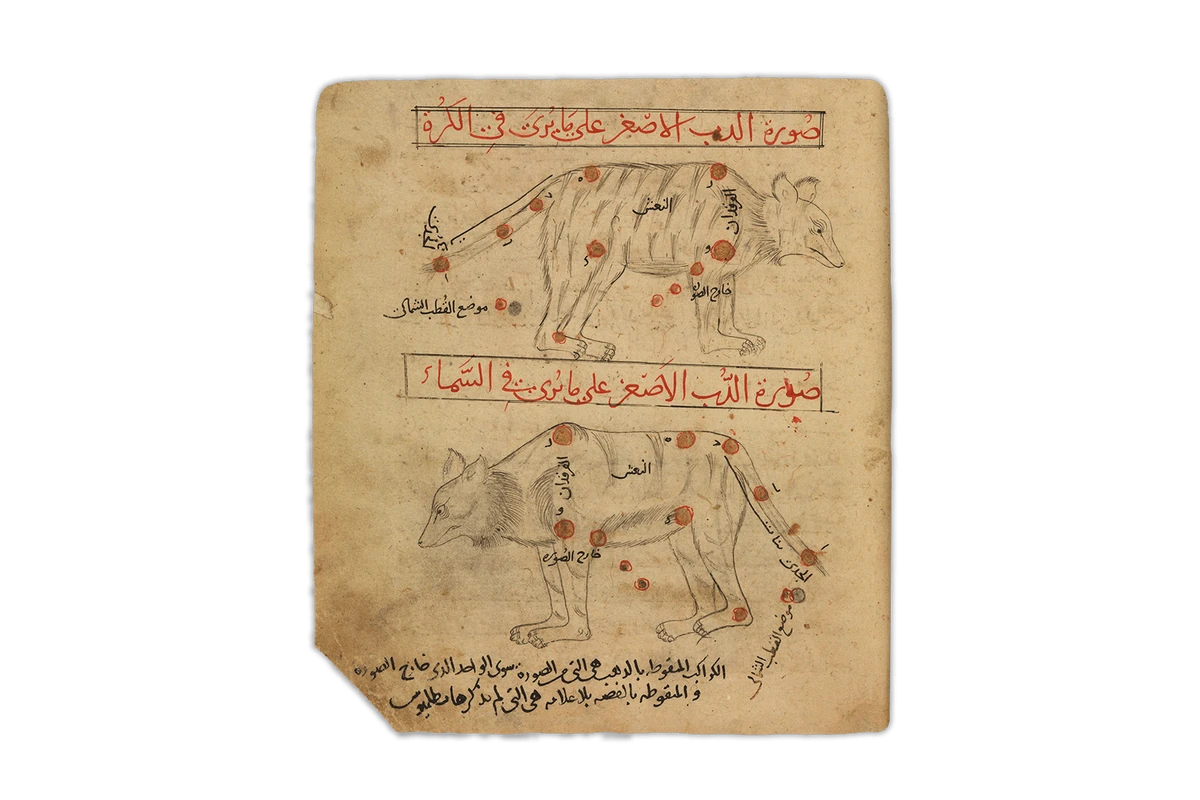 صُورة الدب الاصْغر على مَا يُرَى في الكُرَة
النعش
الفرقدان
خارج الصورة
موضع القُطب الشمالى
صُورة الدُّب الاَصْغر على ما يُرى في السَّماء
النعش
الفرقدان
خارج الصُورة
بنات
الجدى
موضع القطب الشمالى
الكواكب المنقوطه بالذهب هى التى من الصورة سوى الواحد الذى خارج الصورة
و المنقوطه بالفضه بلا علامه هى التى لم يذكرها بطلميوس